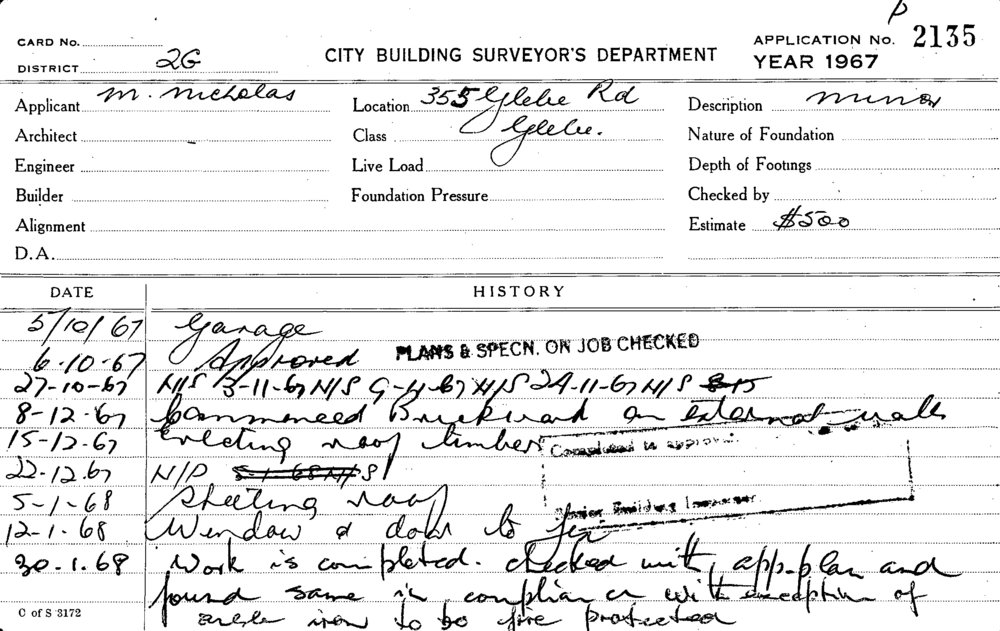 P
CARD No. APPLICATION No. 2135
DISTRICT 2G CITY BUILDING SURVEYOR'S DEPARTMENT YEAR 1967
Applicant M. Nicholas Location 355 Glebe Rd Description Minor
Architect Class Glebe. Nature of Foundation
Engineer Live Load Depth of Footings
Builder Foundation Pressure Checked by
Alignment Estimate $500
D.A.
DATE HISTORY
5/10/67 Garage
6-10-67 Approved PLANS & SPECN. ON JOB CHECKED
27-10-67 N/S 3-11-67 N/S 9-11-67 N/S 24-11-67 N/S
8-12-67 Commenced Brickwork on external walls
15-12-67 Erecting roof timbers Completed to approval.
22-12.67 N/P 5-1-68 N/S
5-1-68 Sheeting roof Senior Building Inspector
12-1-68 Window & door to fix
30.1.68 Work is completed. checked with app.plan and
found same in compliance with exception of
angle iron to be fire protected
C of S 3172